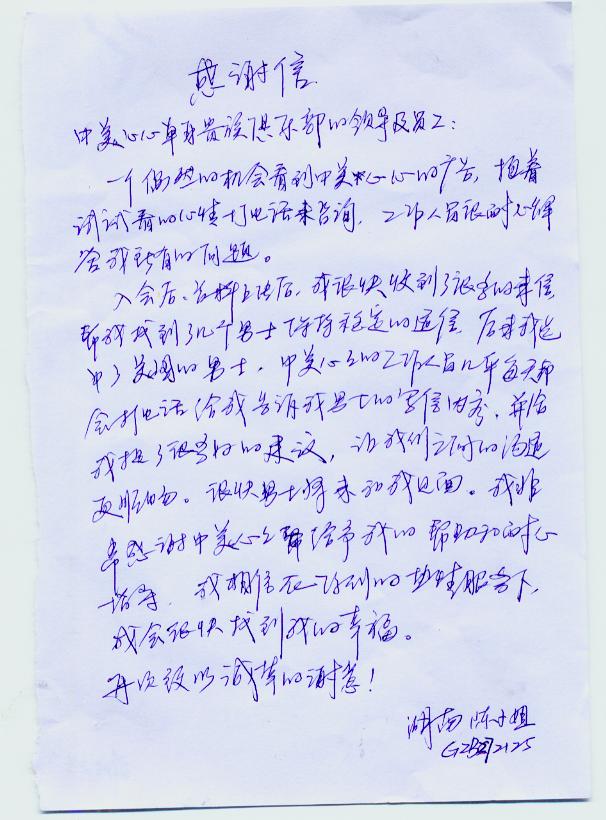 感谢信
中美心心单身贵族俱乐部的领导及员工：
一个偶然的机会看到中美心心的广告，抱着
试试看的心情打电话来咨询，工作人员很耐心解
答我所有的问题。
入会后、资料上传后，我很快收到了很多的来信
帮我找到了几个男士保持稳定的通信，后来我选
中了美国的男士，中美心心的工作人员几乎每天都
会打电话给我告诉我男士的写信内容，并给
我提了很多好的建议，让我们之间的沟通
更顺畅。很快男士将来和我见面。我非
常感谢中美心心给予我的帮助和耐心
指导，我相信在你们的热情服务下，
我会很快找到我的幸福。
再次致以诚挚的谢意！
湖南 陈小姐
2125